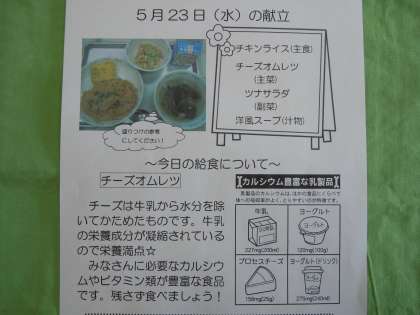 5月23日(水)の献立
チキンライス(主食)
チーズオムレツ
(主菜)
ツナサラダ
(副菜)
洋風スープ(汁物)
盛りつけの参考
にしてください!
～今日の給食について～
チーズオムレツ
チーズは牛乳から水分を除
いてかためたものです。牛乳
の栄養成分が凝縮されている
ので栄養満点☆
みなさんに必要なカルシウ
ムやビタミン類が豊富な食品
です。残さず食べましょう!
【カルシウム豊富な乳製品】
牛乳
227mg(200ml)
ヨーグルト
ヨーグルト
120mg(100g)
プロセスチーズ
158mg(25g)
ヨーグルト(ドリンク)
275mg(240ml)